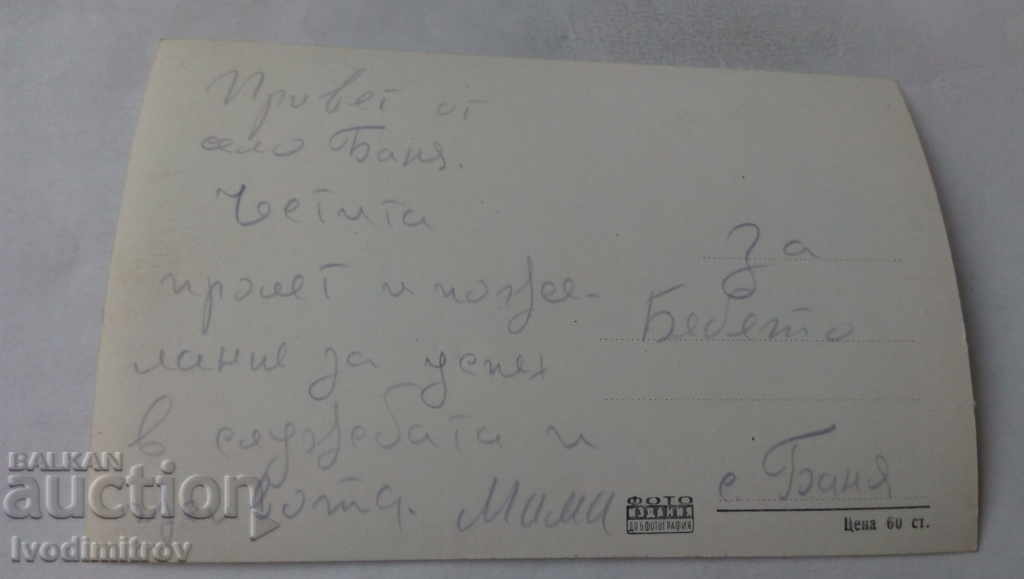 Привет от
село Баня.
Честита
пролет и поже-
лание за успех
в службата и
живота. Мама
За
Бебето
с. Баня
ФОТО
ИЗДАНИЯ
ДП ФОТОГРАФИЯ
Цена 60 ст.
BALKAN
auction
Ivodimitrov